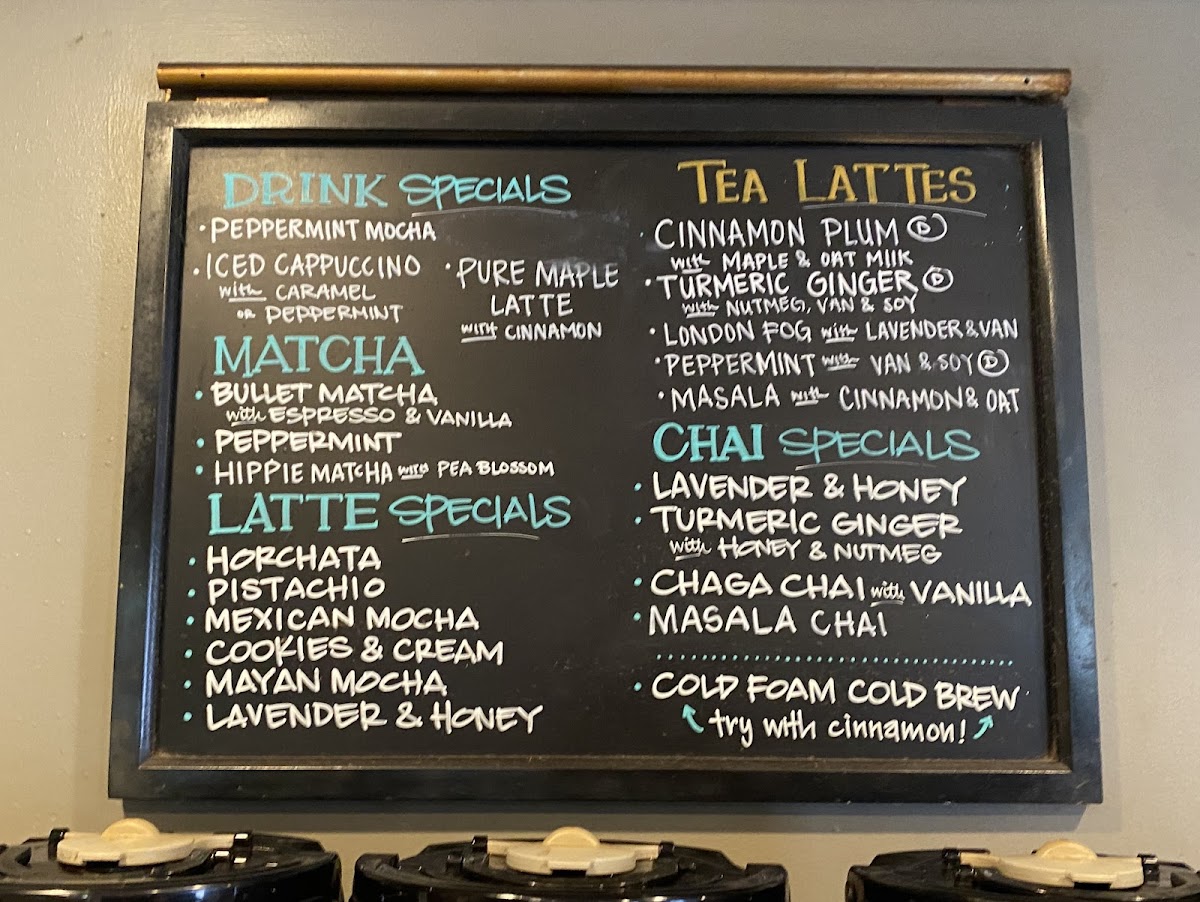 DRINK SPECIALS
• PEPPERMINT MOCHA
• ICED CAPPUCCINO
with CARAMEL
OR PEPPERMINT
• PURE MAPLE
LATTE
with CINNAMON
MATCHA
• BULLET MATCHA
with ESPRESSO & VANILLA
• PEPPERMINT
• HIPPIE MATCHA with PEA BLOSSOM
LATTE SPECIALS
• HORCHATA
• PISTACHIO
• MEXICAN MOCHA
• COOKIES & CREAM
• MAYAN MOCHA
• LAVENDER & HONEY
TEA LATTES
• CINNAMON PLUM Ⓓ
with MAPLE & OAT MILK
• TURMERIC GINGER Ⓓ
with NUTMEG, VAN & SOY
• LONDON FOG with LAVENDER & VAN
• PEPPERMINT with VAN & SOY Ⓓ
• MASALA with CINNAMON & OAT
CHAI SPECIALS
• LAVENDER & HONEY
• TURMERIC GINGER
with HONEY & NUTMEG
• CHAGA CHAI with VANILLA
• MASALA CHAI
• COLD FOAM COLD BREW
try with cinnamon!